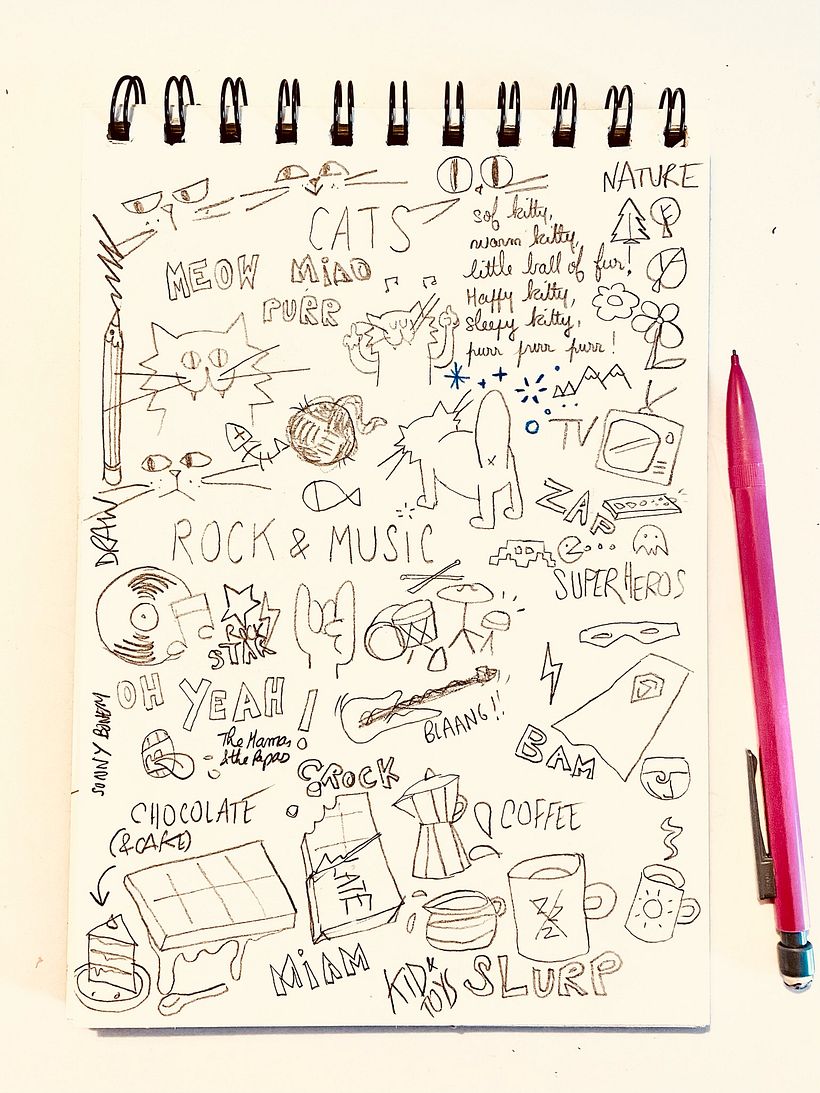 NATURE
CATS
sof kitty,
warm kitty,
little ball of fur!
Happy kitty,
sleepy kitty,
purr purr purr!
MEOW MIAO
PURR
TV
DRAW
ZAP
ROCK & MUSIC
SUPERHEROS
ROCK
STAR
OH YEAH!
BLAANG!!
The Mamas
& the Papas
BAM
CROCK
CHOCOLATE
(& CAKE)
COFFEE
LATE
MIAM
KID
TOYS
SLURP